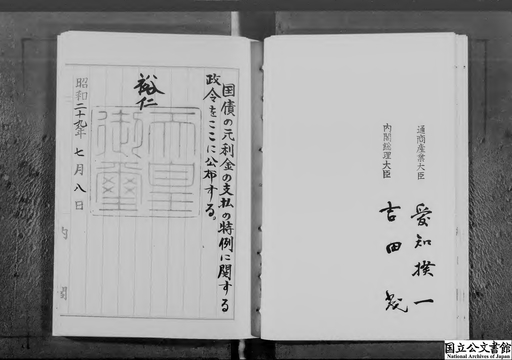 国債の元利金の支払の特例に関する
政令をここに公布する。
裕仁
天皇
御璽
昭和二十九年七月八日
内閣
通商産業大臣 愛知揆一
内閣総理大臣 吉田茂
国立公文書館
National Archives of Japan